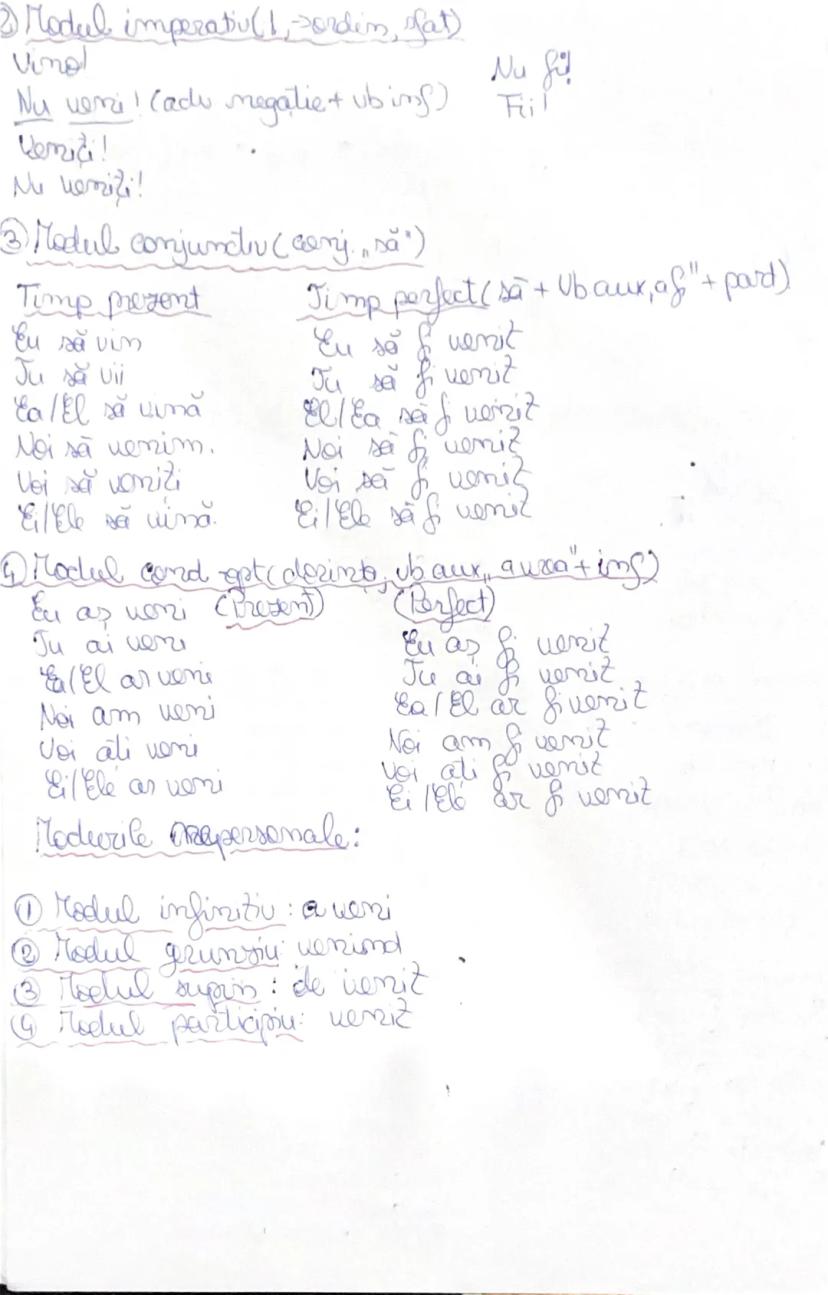 2) Modul imperativ(!,->ordin, sfat)
Vino! Nu fi!
Nu veni! (adv negație + vb inf) Fii!
Veniți!
Nu veniți!
3 Modul conjunctiv(conj. „să")
Timp prezent Timp perfect( să + Vb aux „a fi" + part)
Eu să vin Eu să fi venit
Tu să vii Tu să fi venit
Ea/El să vină El/Ea să fi venit
Noi să venim. Noi să fi venit
Voi să veniți Voi să fi venit
Ei/Ele să vină. Ei/Ele să fi venit
4 Modul cond-opt(dorință, vb aux „a vrea" + inf)
Eu aș veni (Prezent) (Perfect)
Tu ai veni Eu aș fi venit
Ea/El ar veni Tu ai fi venit
Noi am veni Ea/El ar fi venit
Voi ați veni Noi am fi venit
Ei/Ele ar veni Voi ați fi venit
Ei/Ele ar fi venit
Modurile nepersonale:
1 Modul infinitiv: a veni
2 Modul gerunziu: venind
3 Modul supin: de venit
4 Modul participiu: venit